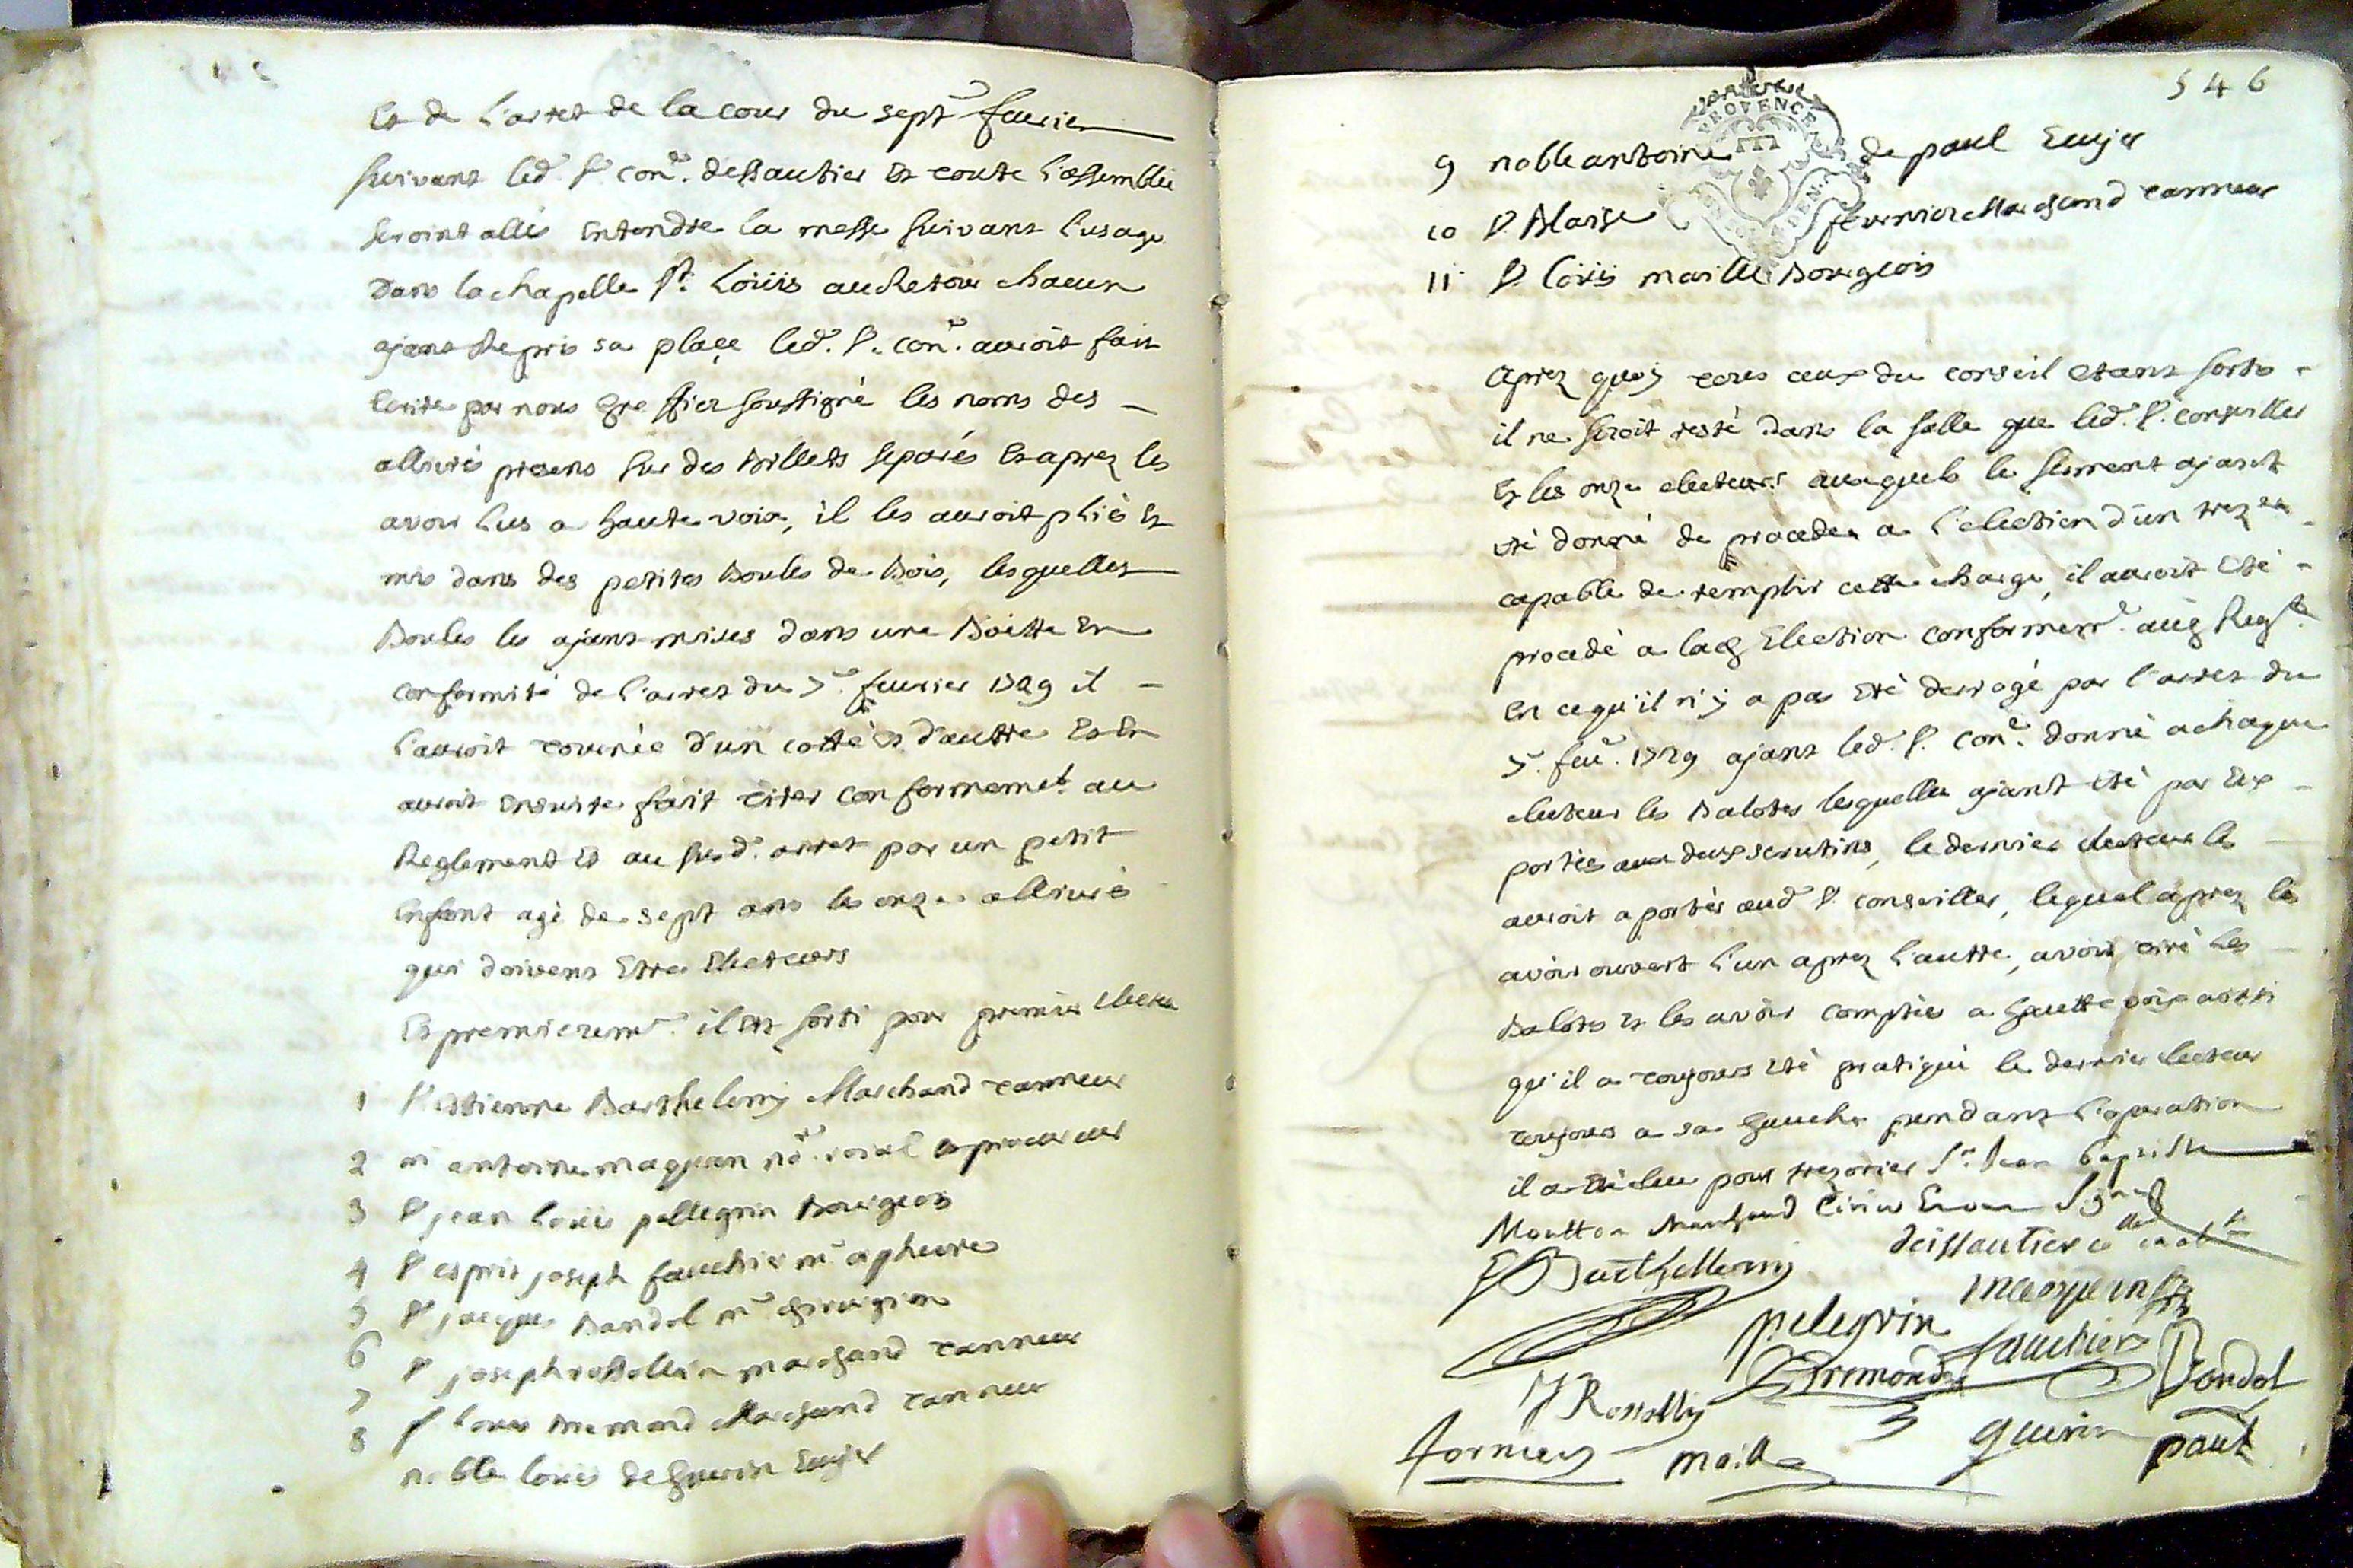 Et de l'arret de la cour du sept.e feurier
suivant led. Sr. con.er dessautier et toute l'assemblée
seroint allés entendre la messe suivant l'usage
dans la chapelle St. Loüis au Retour chacun
ajant Repris sa plaçe led. Sr. con.er auroit fait
Ecrire par nous greffier soussigné les noms des
alliurés presens sur des Billets separés Et aprez les
avoir lus a haute voix, il les auroit pliés Et
mis dans des petites Boules de Bois, lesquelles
Boules les ajant mises dans une Boëtte En
conformité de l'arret du 7e. feurier 1729 il
l'auroit tournée d'un cotté et d'auttre Et En
auroit ensuite fait tirer conformemt. au
Reglement Et au susd. arret par un petit
Enfant agé de sept ans les onze alliurés
qui doivent Etre Electeurs
Et premieremt. il Est sorti pour premier Electeur
1 Sr estienne Barthelemy Marchand tanneur
2 me antoine maquan nore. roial Et procureur
3 Sr jean Loüis pellegrin Bourgeois
4 Sr esprit joseph fauchier me apheure
5 Sr jacques Dandol me chirurgien
6 Sr joseph rossollin marchand tanneur
7 Sr Louis Bremond Marchand tanneur
8 noble louis de guerin Euyer
546
9 noble antoine de paul Euyer
10 Sr Blaise fournier Marchand tanneur
11 Sr loüis maille Bourgeois
aprez quoy tous ceux du conseil etant sortis
il ne seroit resté dans la salle que led. Sr. conseiller
Et les onze electeurs auxquels le serment ajant
eté donné de proceder a l'election d'un trezer
capable de remplir cette charge, il auroit eté
procedé a lad Election conformemt. aud Reglt.
En ce qu'il n'y a pas eté derrogé par l'arret du
7e. feur. 1729 ajant led. Sr. coner. donné a chaque
electeur les Balotes lesquelles ajant eté par Eux
portées aux deux scrutins, le dernier electeur les
auroit aportés aud Sr. conseiller, lequel aprez les
avoir ouvert l'un aprez l'auttre, avoir tiré les
Balotes Et les avoir comptées a hautte voix ainsi
qu'il a toujours eté pratiqué le dernier electeur
toujours a sa gauche pendant l'operation
il a eté elu pour trezorier Sr. Jean Baptiste
Moutton Marchand
Barthellemy deissautier
maquan
pelegrin fauchier
J Rossolly Bremond Dandol
fornier maille guerin paul